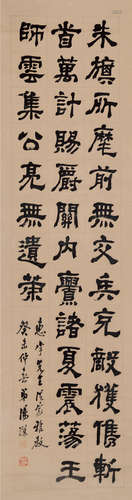 朱旗所麾前無交兵克敵獲儁斬
首萬計賜爵關內齎諸夏震蕩王
師雲集公亮無遺策
惠宇先生法家雅教
癸未仲春